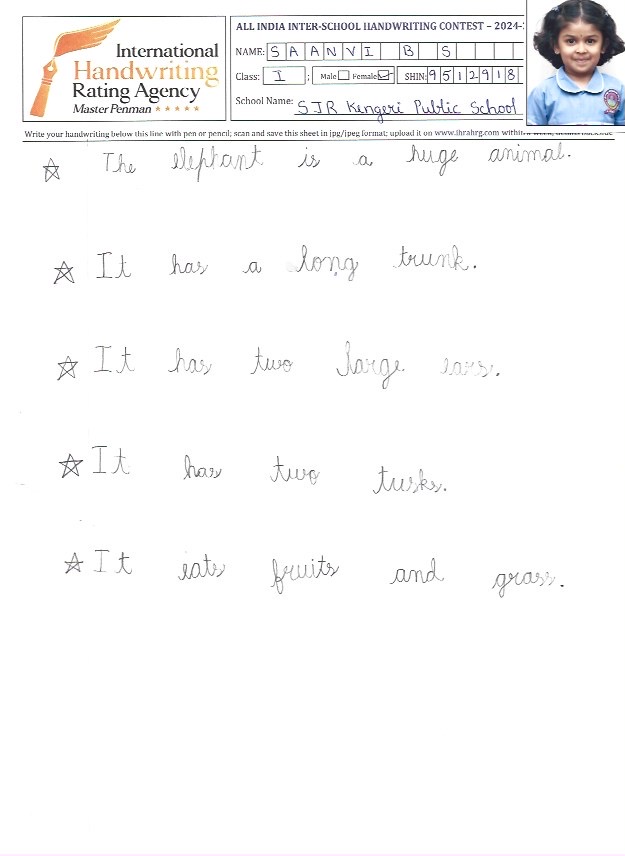 International
Handwriting
Rating Agency
Master Penman ★★★★★
ALL INDIA INTER-SCHOOL HANDWRITING CONTEST – 2024-
NAME: SAANVI B S
Class: I ; Male Female ✓ SHIN: 9512918
School Name: SJR Kengeri Public School
Write your handwriting below this line with pen or pencil; scan and save this sheet in jpg/jpeg format; upload it on www.ihrahrg.com within
☆ The elephtant is a huge animal.
☆ It has a long trunk.
☆ It has two large ears.
☆ It has two tusks.
☆ It eats fruits and grass.